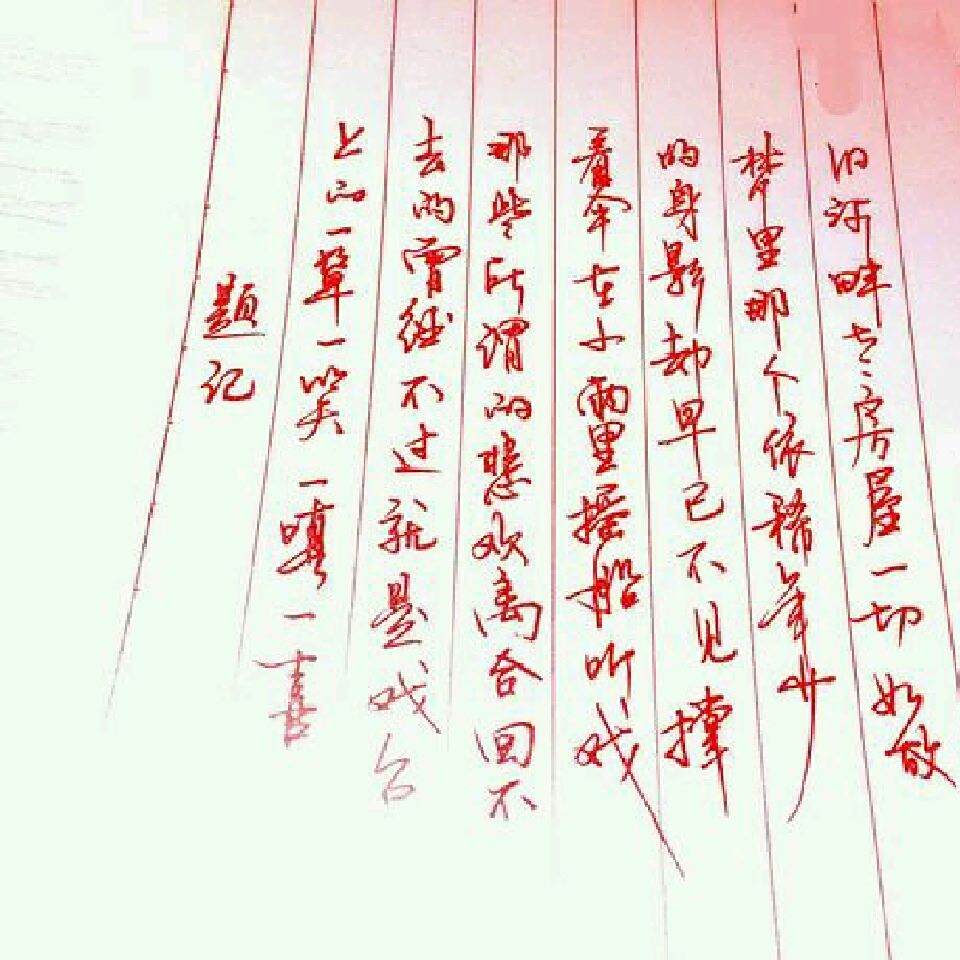 旧河畔老房屋一切如故
梦里那个依稀年少
的身影却早已不见撑
着伞在小雨里摇船听戏
那些所谓的悲欢离合回不
去的曾经不过就是戏台
上的一颦一笑一嗔一喜
题记